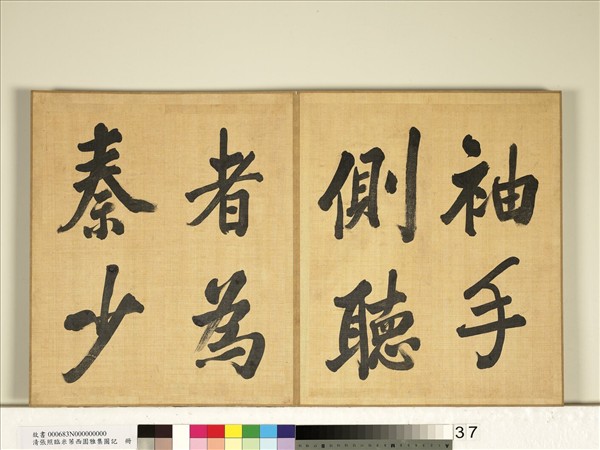 袖手
側聽
者為
秦少
37
故書 000683N000000000
清張照臨米芾西園雅集圖記 冊